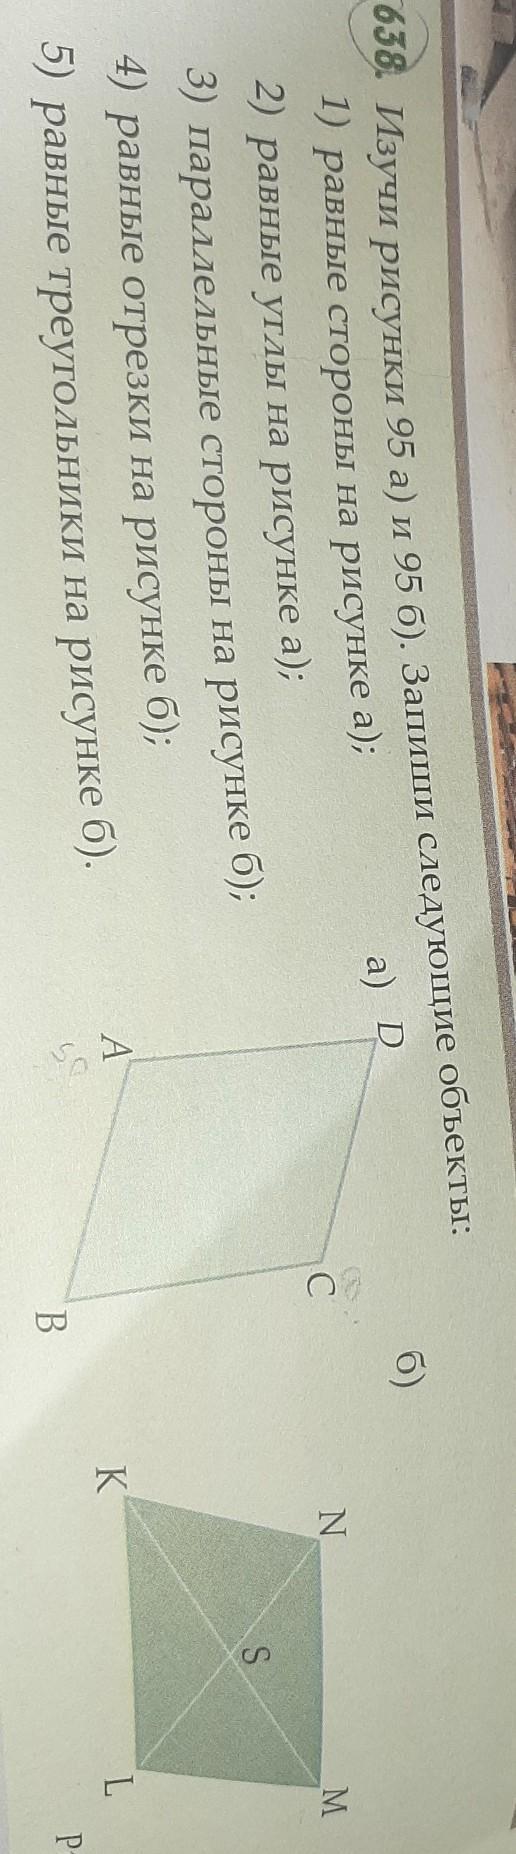 638. Изучи рисунки 95 а) и 95 б). Запиши следующие объекты:
1) равные стороны на рисунке а);
2) равные углы на рисунке а);
3) параллельные стороны на рисунке б);
4) равные отрезки на рисунке б);
5) равные треугольники на рисунке б).
а)
D
C
A
B
б)
N
M
S
K
L